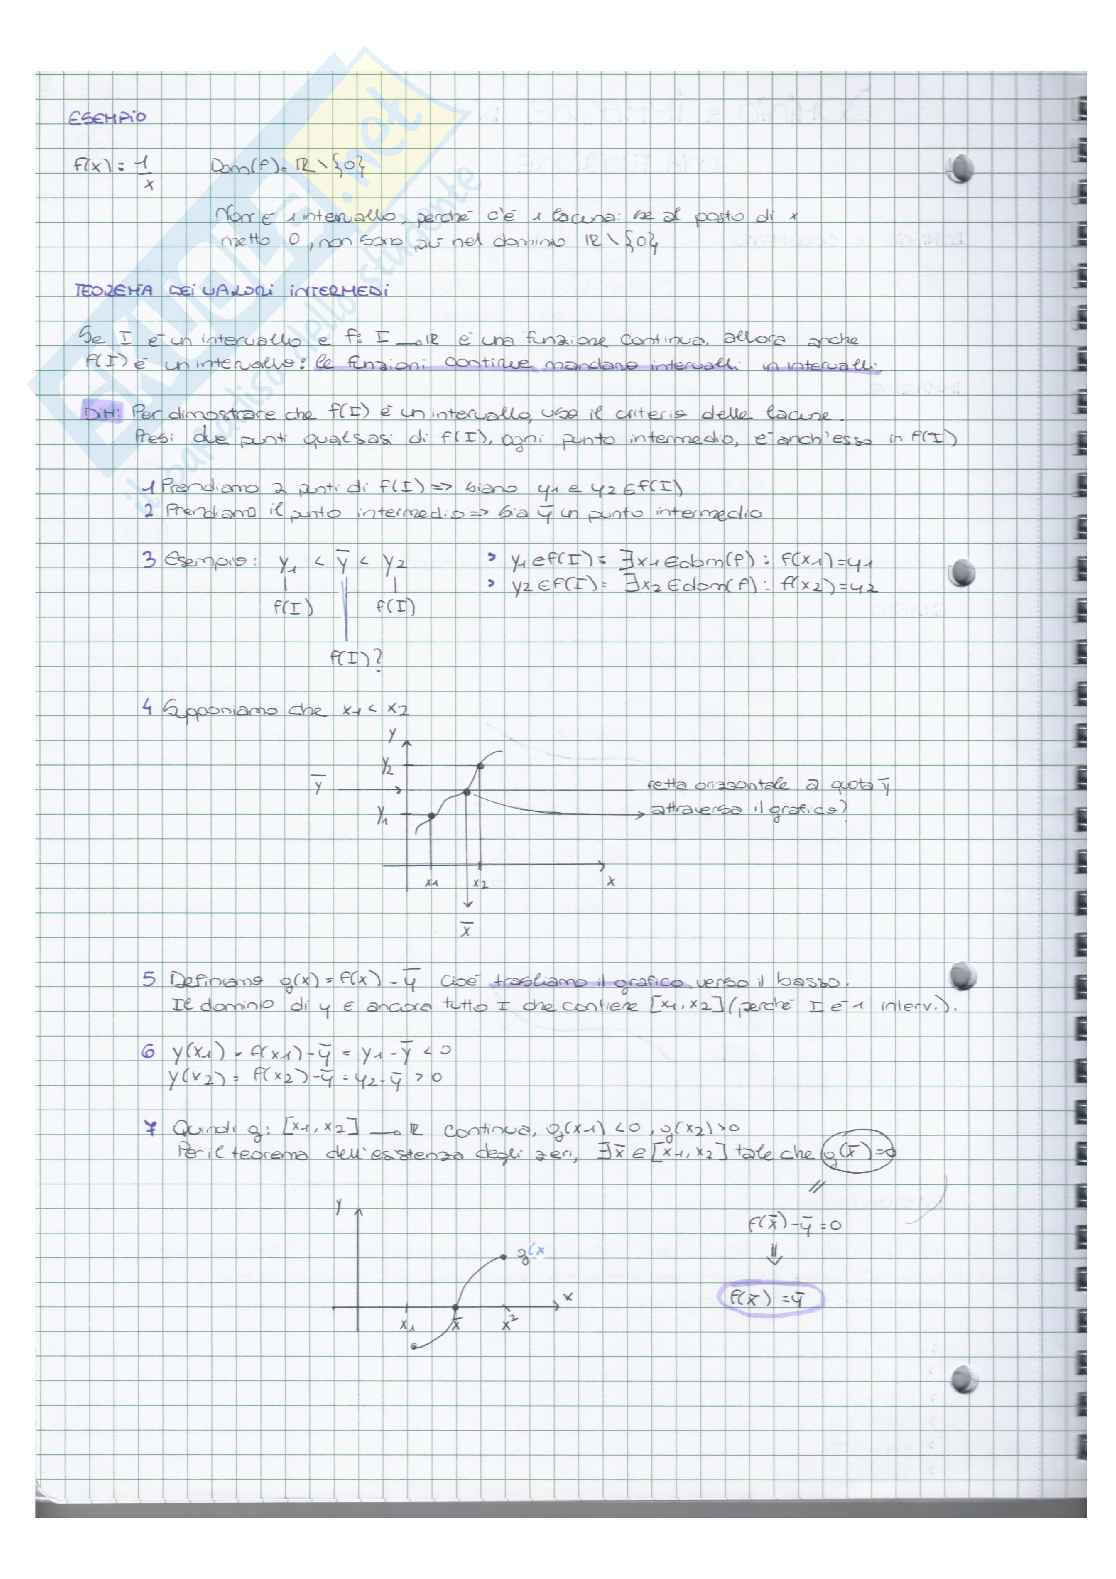 ESEMPIO
f(x) = 1/x Dom(f) = ℝ \ {0}
Non è 1 intervallo, perché c'è 1 lacuna: se al posto di x
metto 0, non sono più nel dominio ℝ \ {0}
TEOREMA DEI VALORI INTERMEDI
Se I è un intervallo e f: I → ℝ è una funzione continua, allora anche
f(I) è un intervallo: le funzioni continue mandano intervalli in intervalli.
DIM: Per dimostrare che f(I) è un intervallo, uso il criterio delle lacune
Presi due punti qualsasi di f(I), ogni punto intermedio, è anch'esso in f(I)
1 Prendiamo 2 punti di f(I) => siano y1 e y2 ∈ f(I)
2 Prendiamo il punto intermedio => sia ȳ un punto intermedio
3 Esempio: y1 < ȳ < y2
f(I) f(I)
f(I)?
> y1 ∈ f(I) = ∃ x1 ∈ dom(f) : f(x1) = y1
> y2 ∈ f(I) = ∃ x2 ∈ dom(f) : f(x2) = y2
4 Supponiamo che x1 < x2
y
y2
ȳ
y1
retta orizzontale a quota ȳ
attraversa il grafico?
x1 x2 x
x̄
5 Definiamo g(x) = f(x) - ȳ cioè trasliamo il grafico verso il basso.
Il dominio di y è ancora tutto I che contiene [x1, x2] (perché I è 1 interv.).
6 y(x1) = f(x1) - ȳ = y1 - ȳ < 0
y(x2) = f(x2) - ȳ = y2 - ȳ > 0
7 Quindi g: [x1, x2] → ℝ continua, g(x1) < 0, g(x2) > 0
Per il teorema dell'esistenza degli zeri, ∃ x̄ ∈ [x1, x2] tale che g(x̄) = 0
//
f(x̄) - ȳ = 0
⇓
f(x̄) = ȳ
y
g(x
x
x1 x̄ x2
SKUOLA.net
il paradiso dello studente